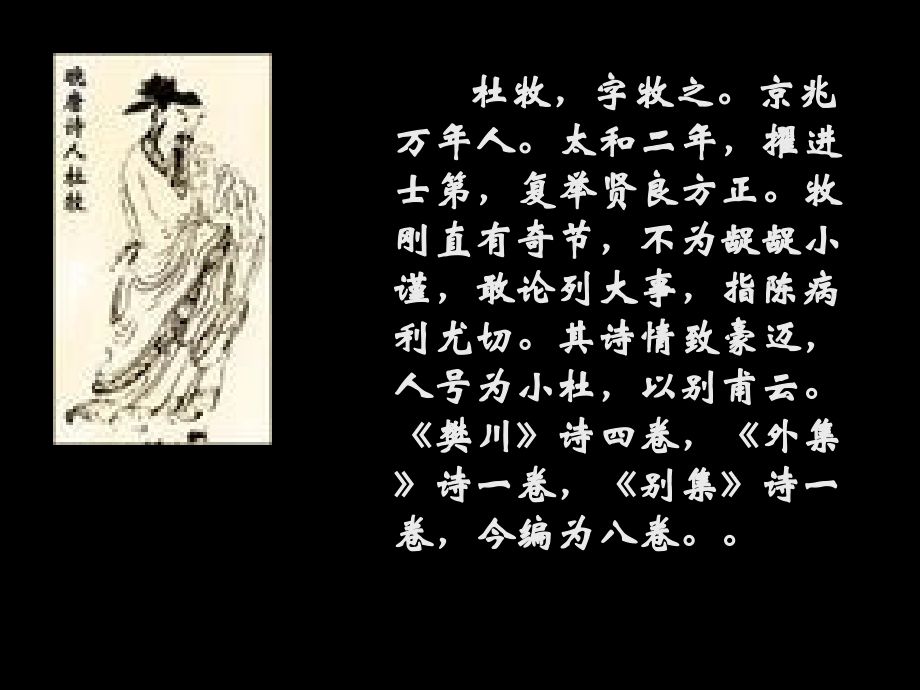 晚唐诗人杜牧
杜牧，字牧之。京兆
万年人。太和二年，擢进
士第，复举贤良方正。牧
刚直有奇节，不为龊龊小
谨，敢论列大事，指陈病
利尤切。其诗情致豪迈，
人号为小杜，以别甫云。
《樊川》诗四卷，《外集
》诗一卷，《别集》诗一
卷，今编为八卷。。